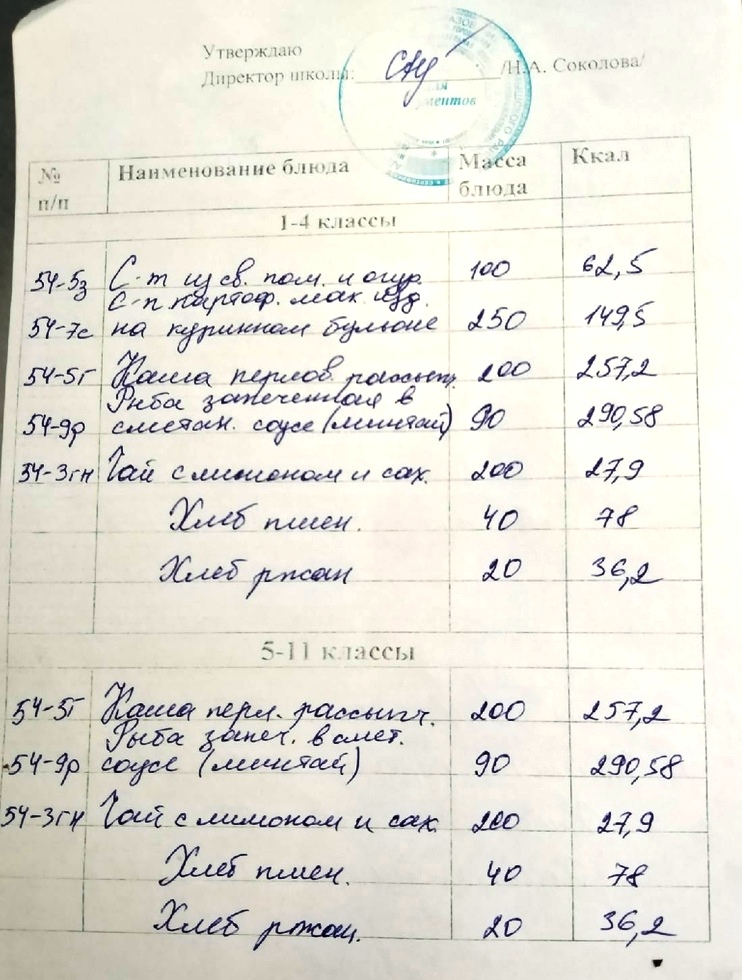 Утверждаю
Директор школы: /Н.А. Соколова/
ментов
№ п/п Наименование блюда Масса блюда Ккал
1-4 классы
54-5з С-т из св. пом. и огур. 100 62,5
С-п картоф. мак. изд.
54-7с на курином бульоне 250 149,5
54-5г Каша перлов. рассып. 200 257,2
Рыба запеченная в
54-9р сметан. соусе (минтай) 90 290,58
54-3гн Чай с лимоном и сах. 200 27,9
Хлеб пшен. 40 78
Хлеб ржан 20 36,2
5-11 классы
54-5г Каша перл. рассыпч. 200 257,2
Рыба запеч. в смет.
54-9р соусе (минтай) 90 290,58
54-3гн Чай с лимоном и сах 200 27,9
Хлеб пшен. 40 78
Хлеб ржан. 20 36,2